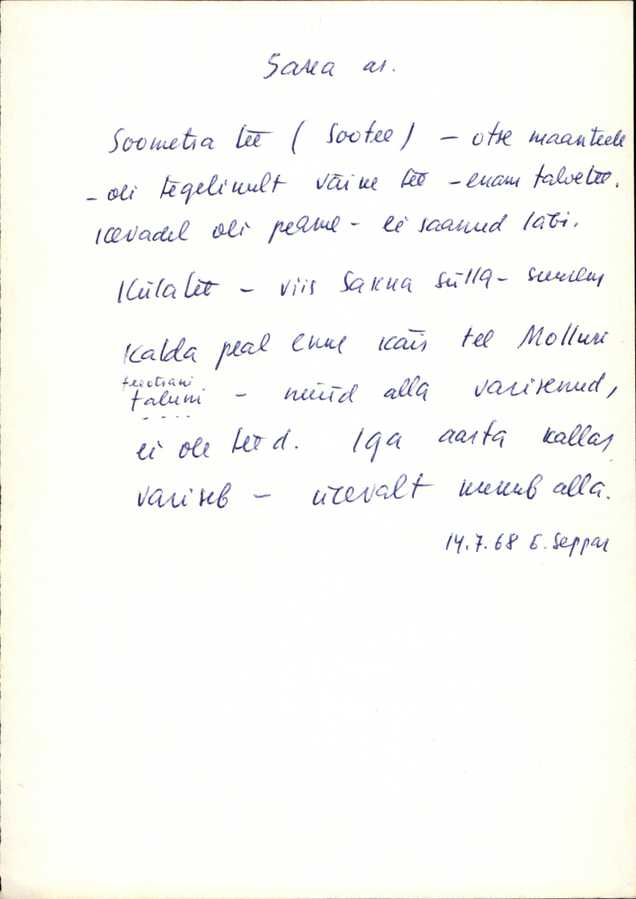 Saka as.
Soometsa tee (Sootee) – otse maanteele
– oli tegelikult väike tee – enam talvetee.
Kevadel oli pehme – ei saanud läbi.
Külatee – viis Sakha sülla –
Kalda peal enne käis tee
taluni – nüüd alla varisenud,
ei ole teed. Iga aasta kallas
variseb – ülevalt munub alla.
14.7.68 E. Seppar